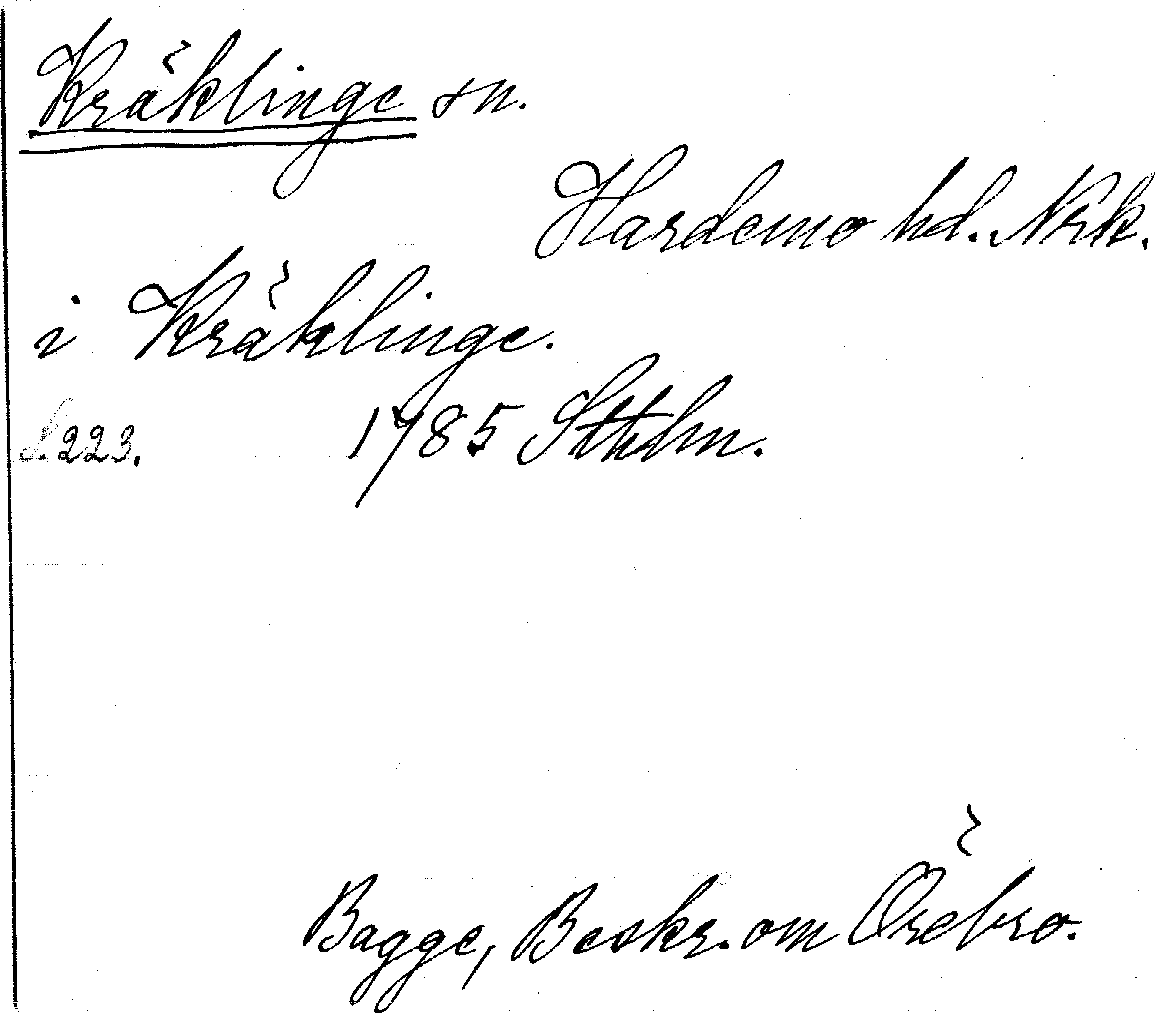 Kräklinge sn.
Hardemo hd. Nrk.
i Kräklinge.
S. 223. 1785 Sthlm.
Bagge, Beskr. om Örebro.